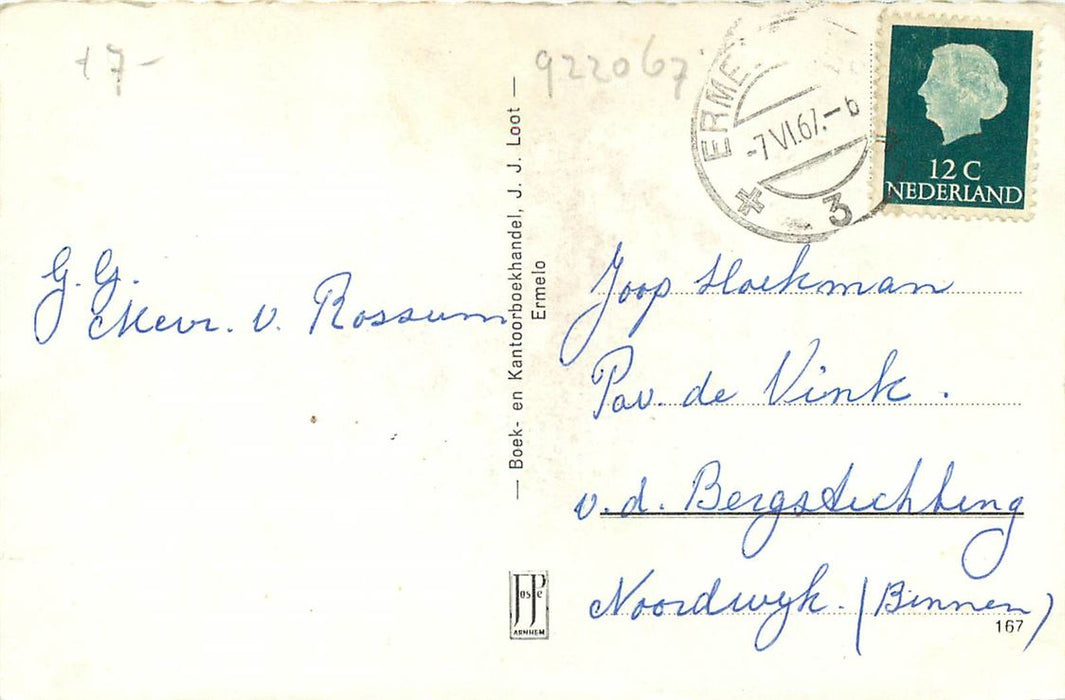 17-
922067
ERME
-7.VI.67.-6
3
12 C
NEDERLAND
G. G.
Mevr. v. Rossum
— Boek- en Kantoorboekhandel, J. J. Loot —
Ermelo
Joop Hoekman
Pav. de Vink.
v.d. Bergstichting
Noordwijk. (Binnen)
JosPé
ARNHEM
167